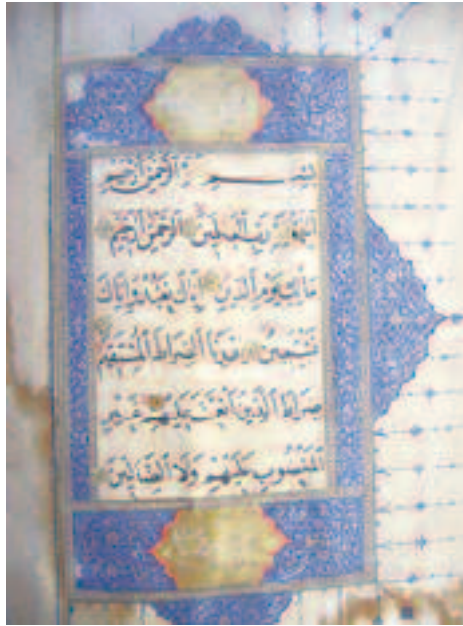 بسم الله الرحمن الرحيم
الحمد لله رب العلمين الرحمن الرحيم
ملك يوم الدين إياك نعبد وإياك
نستعين اهدنا الصراط المستقيم
صراط الذين أنعمت عليهم غير
المغضوب عليهم ولا الضالين